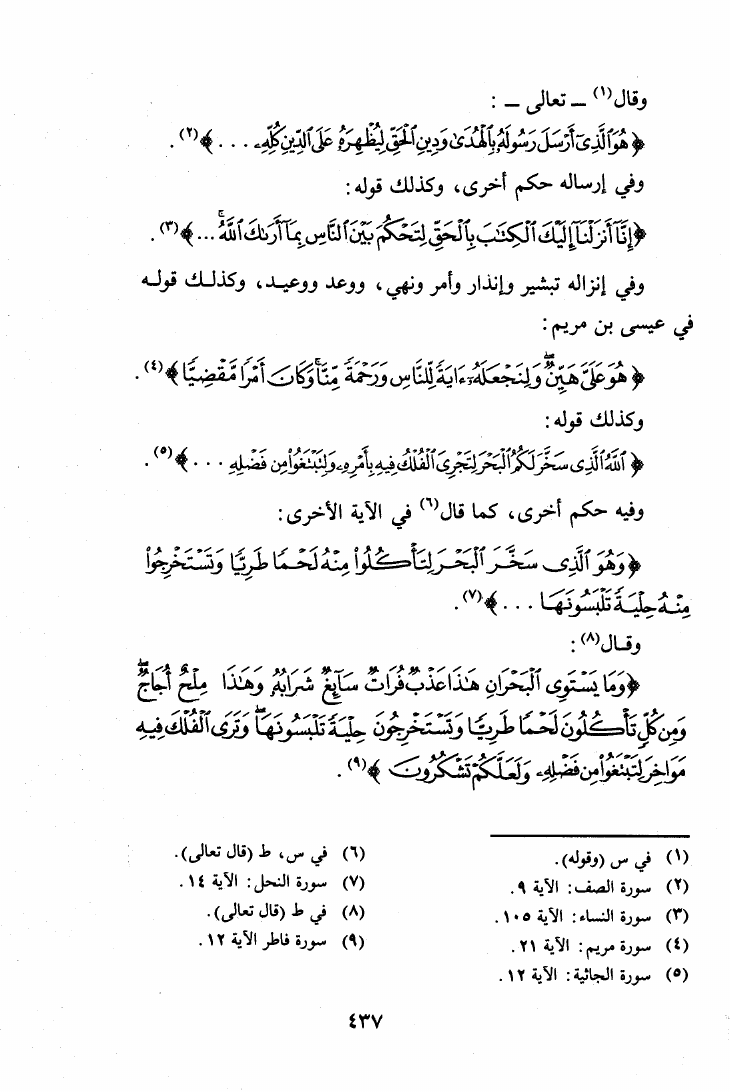 وقال(١) ـ تعالى ـ :
﴿ هُوَ ٱلَّذِىٓ أَرْسَلَ رَسُولَهُۥ بِٱلْهُدَىٰ وَدِينِ ٱلْحَقِّ لِيُظْهِرَهُۥ عَلَى ٱلدِّينِ كُلِّهِۦ . . . ﴾(٢).
وفي إرساله حكم أخرى، وكذلك قوله:
﴿ إِنَّآ أَنزَلْنَآ إِلَيْكَ ٱلْكِتَٰبَ بِٱلْحَقِّ لِتَحْكُمَ بَيْنَ ٱلنَّاسِ بِمَآ أَرَىٰكَ ٱللَّهُ ۚ ... ﴾(٣).
وفي إنزاله تبشير وإنذار وأمر ونهي، ووعد ووعيد، وكذلك قوله
في عيسى بن مريم:
﴿ هُوَ عَلَىَّ هَيِّنٌ ۖ وَلِنَجْعَلَهُۥٓ ءَايَةً لِّلنَّاسِ وَرَحْمَةً مِّنَّا ۚ وَكَانَ أَمْرًا مَّقْضِيًّا ﴾(٤).
وكذلك قوله:
﴿ ٱللَّهُ ٱلَّذِى سَخَّرَ لَكُمُ ٱلْبَحْرَ لِتَجْرِىَ ٱلْفُلْكُ فِيهِ بِأَمْرِهِۦ وَلِتَبْتَغُوا۟ مِن فَضْلِهِۦ . . . ﴾(٥).
وفيه حكم أخرى، كما قال(٦) في الآية الأخرى:
﴿ وَهُوَ ٱلَّذِى سَخَّرَ ٱلْبَحْرَ لِتَأْكُلُوا۟ مِنْهُ لَحْمًا طَرِيًّا وَتَسْتَخْرِجُوا۟
مِنْهُ حِلْيَةً تَلْبَسُونَهَا . . . ﴾(٧).
وقال(٨):
﴿ وَمَا يَسْتَوِى ٱلْبَحْرَانِ هَٰذَا عَذْبٌ فُرَاتٌ سَآئِغٌ شَرَابُهُۥ وَهَٰذَا مِلْحٌ أُجَاجٌ ۖ
وَمِن كُلٍّ تَأْكُلُونَ لَحْمًا طَرِيًّا وَتَسْتَخْرِجُونَ حِلْيَةً تَلْبَسُونَهَا ۖ وَتَرَى ٱلْفُلْكَ فِيهِ
مَوَاخِرَ لِتَبْتَغُوا۟ مِن فَضْلِهِۦ وَلَعَلَّكُمْ تَشْكُرُونَ ﴾(٩).
(١) في س (وقوله).
(٢) سورة الصف: الآية ٩.
(٣) سورة النساء: الآية ١٠٥.
(٤) سورة مريم: الآية ٢١.
(٥) سورة الجاثية: الآية ١٢.
(٦) في س، ط (قال تعالى).
(٧) سورة النحل: الآية ١٤.
(٨) في ط (قال تعالى).
(٩) سورة فاطر الآية ١٢.
٤٣٧